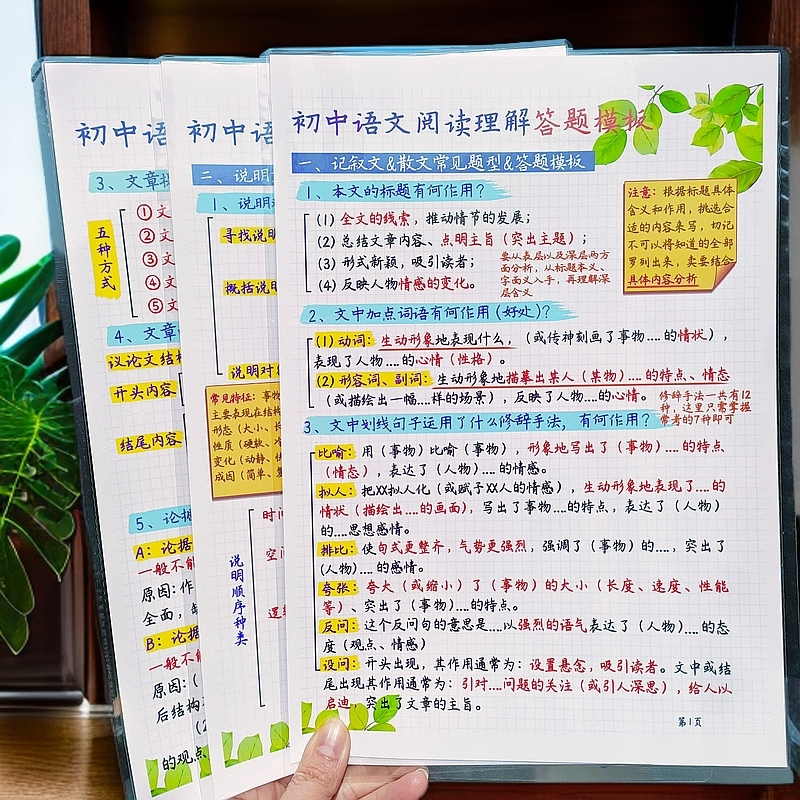 初中语文阅读理解答题模板
一、记叙文&散文常见题型&答题模板
1、本文的标题有何作用?
(1) 全文的线索,推动情节的发展;
(2) 总结文章内容、点明主旨(突出主题);
(3) 形式新颖,吸引读者;
(4) 反映人物情感的变化。
要从表层以及深层两方
面分析,从标题本义、
字面义入手,再理解深
层含义
注意:根据标题具体
含义和作用,挑选合
适的内容来写,切记
不可以将知道的全部
罗列出来,卖要结合
具体内容分析
2、文中加点词语有何作用(好处)?
(1) 动词:生动形象地表现什么,(或传神刻画了事物....的情状),
表现了人物....的心情(性格)。
(2) 形容词、副词:生动形象地描摹出某人(某物)....的特点、情态
(或描绘出一幅...样的场景),反映了人物....的心情。
修辞手法一共有12
种,这里只需掌握
常考的7种即可
3、文中划线句子运用了什么修辞手法,有何作用?
比喻:用(事物)比喻(事物),形象地写出了(事物)....的特点
(情态),表达了(人物)....的情感。
拟人:把XX拟人化(或赋予XX人的情感),生动形象地表现了....的
情状(描绘出....的画面),写出了事物....的特点,表达了(人物)
的....思想感情。
排比:使句式更整齐,气势更强烈,强调了(事物)的....,突出了
(人物)....的感情。
夸张:夸大(或缩小)了(事物)的大小(长度、速度、性能
等)、突出了(事物)....的特点。
反问:这个反问句的意思是....以强烈的语气表达了(人物)....的态
度(观点、情感)
设问:开头出现,其作用通常为:设置悬念,吸引读者。文中或结
尾出现其作用通常为:引对....问题的关注(或引人深思),给人以
启迪,突出了文章的主旨。
第1页
初中语
二、说明
1、说明
寻找说明
概括说明
说明对
常见特征:事物
主要表现在结构
形态(大小、长
性质(硬软、冷
变化(动静、快
成因(简单、复
说明顺序种类
时间
空间
逻辑
初中语
3、文章
五种方式
① 文
② 文
③ 文
④ 文
⑤ 文
4、文章
议论文结构
开头内容
结尾内容
5、论据
A:论据
一般不能
原因:作
全面,
B:论据
一般不能
原因:(
后结构
(2
的观点